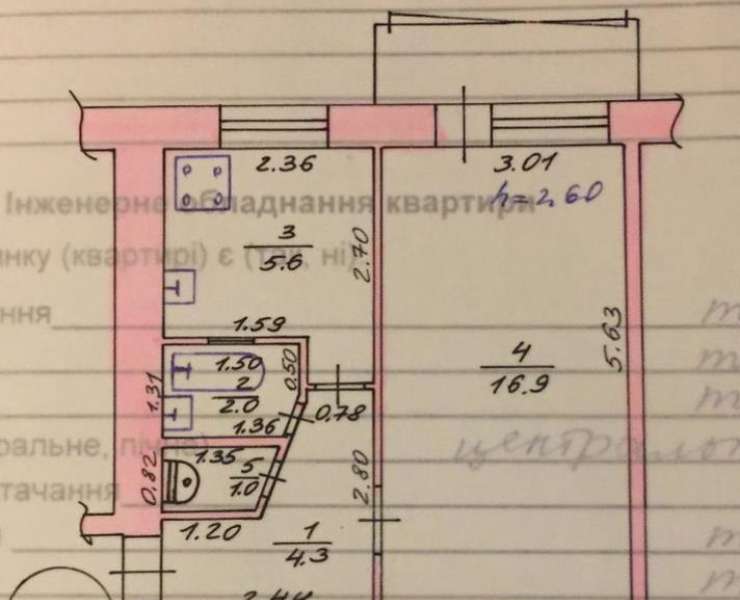 2.36
3.01
h=2,60
Інженерне обладнання квартири
3
5.6
2.70
инку (квартирі) є (так, ні)
ння
1.59
5.63
1.50
0.50
4
16.9
2
2.0
1.31
1.36
0.78
ральне,
центральн
1.35
5
1.0
0.82
2.80
стачання
1.20
1
4.3
2.44